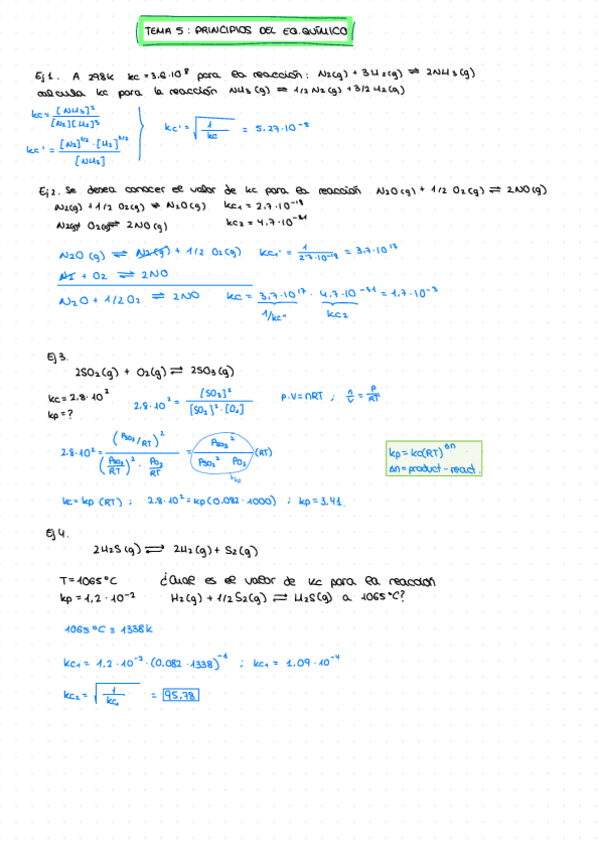 TEMA 5: PRINCIPIOS DEL EQ.QUÍMICO
Ej 1. A 298k kc = 3.6·10⁸ para la reacción: N₂(g) + 3H₂(g) ⇌ 2NH₃(g)
calcula kc para la reacción NH₃(g) ⇌ 1/2 N₂(g) + 3/2 H₂(g)
kc = [NH₃]² / [N₂][H₂]³
kc' = [N₂]^1/2 · [H₂]^3/2 / [NH₃]
kc' = √(1/kc) = 5.27·10⁻⁵
Ej 2. Se desea conocer el valor de kc para la reacción N₂O(g) + 1/2 O₂(g) ⇌ 2NO(g)
N₂(g) + 1/2 O₂(g) ⇌ N₂O(g) kc₁ = 2.7·10⁻¹⁸
N₂(g) O₂(g) ⇌ 2NO(g) kc₂ = 4.7·10⁻³¹
N₂O (g) ⇌ N₂(g) + 1/2 O₂(g) kc₁' = 1 / 2.7·10⁻¹⁸ = 3.7·10¹⁷
+ O₂ ⇌ 2NO
N₂O + 1/2 O₂ ⇌ 2NO kc = 3.7·10¹⁷ · 4.7·10⁻³¹ = 1.7·10⁻³
kc₂
Ej 3.
2SO₂(g) + O₂(g) ⇌ 2SO₃(g)
kc = 2.8·10²
kp = ?
2.8·10² = [SO₃]² / [SO₂]²·[O₂]
P·V = nRT ; n/V = P/RT
2.8·10² = (Pso₃/RT)² / (Pso₂/RT)² · Po₂/RT = Pso₃² / Pso₂² Po₂ (RT)
kp
kp = kc(RT)^Δn
Δn = product - react.
kc = kp (RT) ; 2.8·10² = kp (0.082·1000) ; kp = 3.41.
Ej 4.
2H₂S(g) ⇌ 2H₂(g) + S₂(g)
T = 1065°C ¿Cual es el valor de kc para la reacción
kp = 1,2·10⁻² H₂(g) + 1/2 S₂(g) ⇌ H₂S(g) a 1065°C?
1065°C = 1338k
kc₁ = 1.2·10⁻²·(0.082·1338)⁻¹ ; kc₁ = 1.09·10⁻⁴
kc₂ = √(1/kc₁) = 95,78